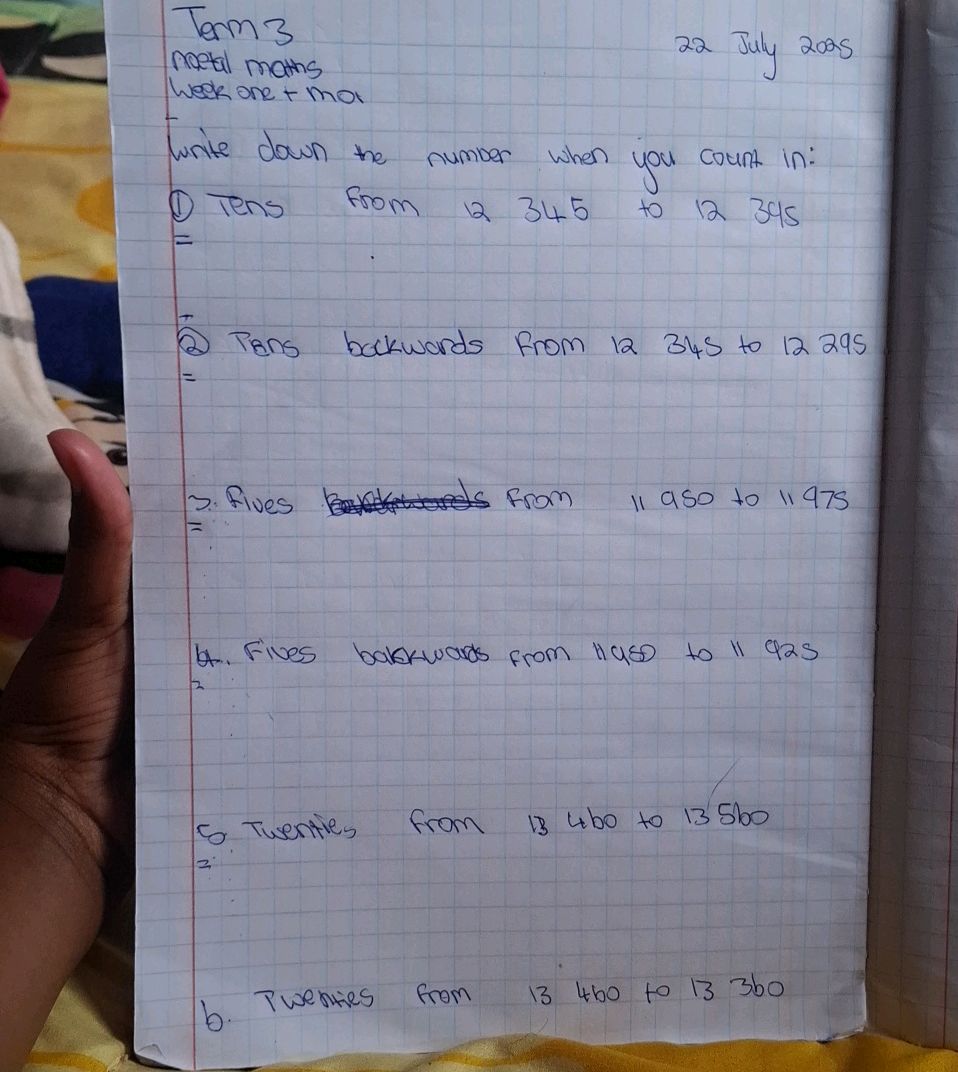 Term 3
22 July 2025
metal maths
Week one + mo
write down the number when you count in:
① Tens from 12 345 to 12 395
=
② Tens backwards from 12 345 to 12 295
=
3. Fives from 11 950 to 11 975
=
4. Fives backwards from 11 950 to 11 925
=
5 Twenties from 13 460 to 13 560
=
6. Twenties from 13 460 to 13 360